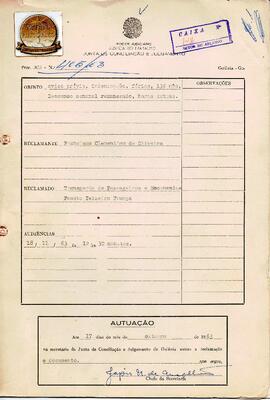 PODER JUDICIÁRIO
JUSTIÇA DO TRABALHO
JUNTA DE CONCILIAÇÃO E JULGAMENTO
CAIXA
SETOR DE ARQUIVO
Proc. JCJ - N.
Goiânia - Go
OBJETO
aviso prévio, indenização, férias, 13º sal.
Descanso semanal remunerado, horas extras.
OBSERVAÇÕES
RECLAMANTE
Clementino de Oliveira
RECLAMADO
Transporte de Passageiros e Encomendas
Fausto Teixeira França
AUDIÊNCIAS
18, 11, 63
AUTUAÇÃO
Aos 17 dias do mês de outubro de 1963
na secretaria da Junta de Conciliação e Julgamento de Goiânia autuo a reclamação
e documento. que segue.
Chefe da Secretaria